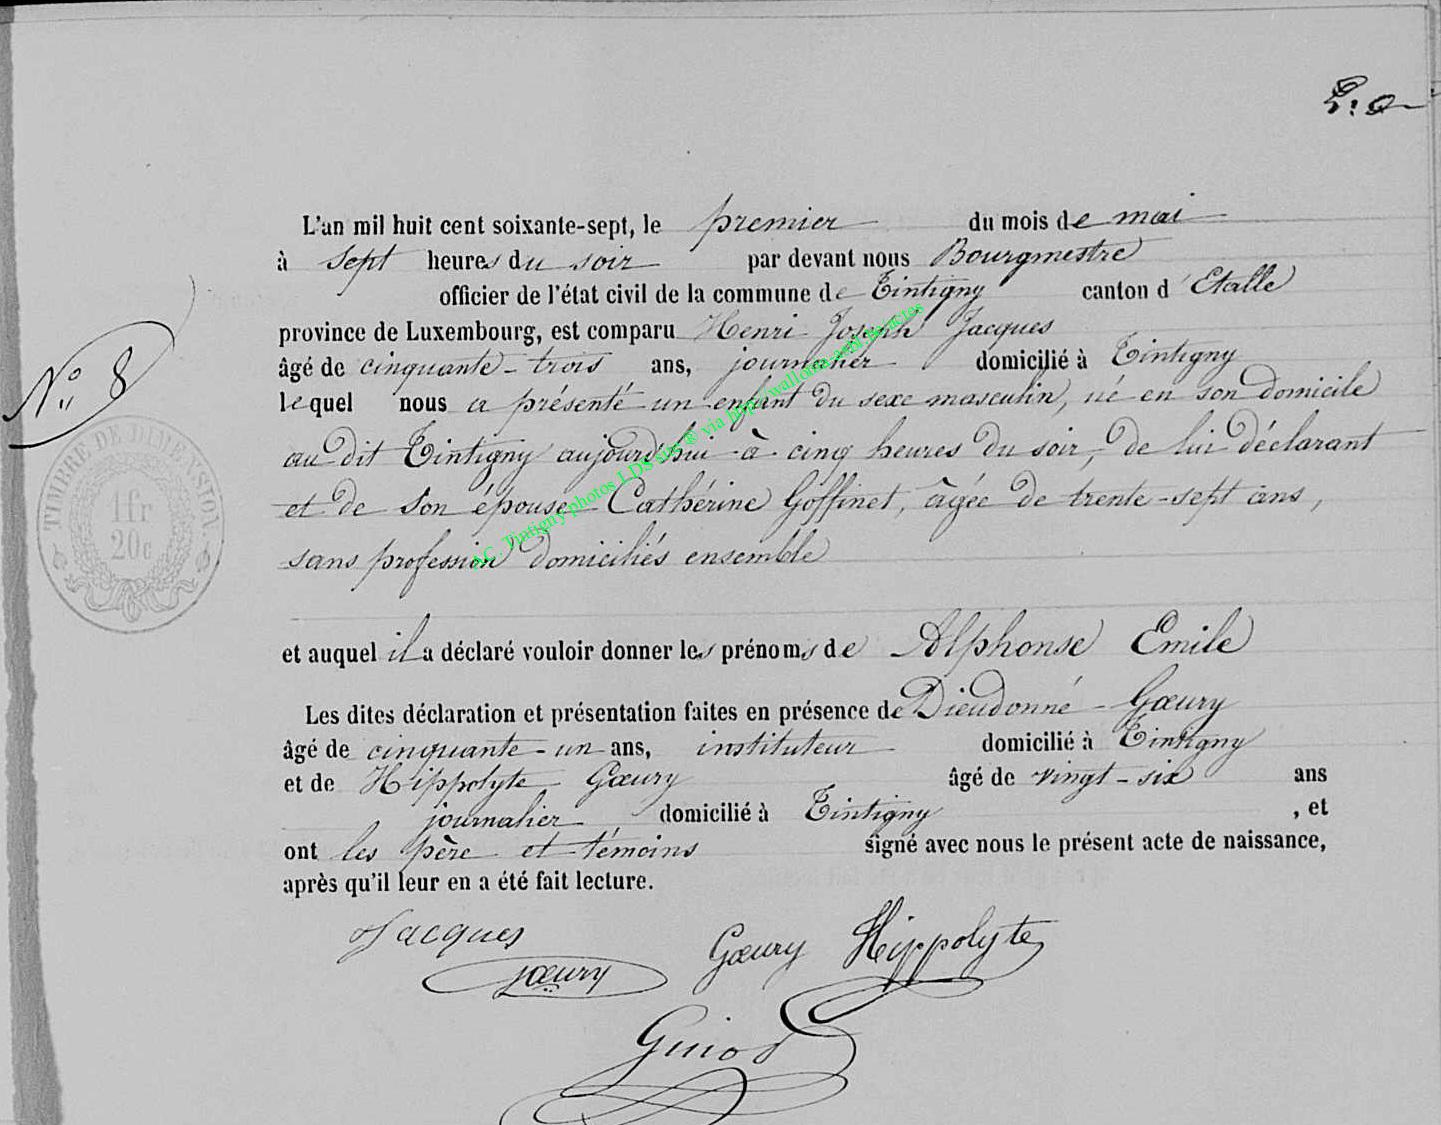 L'an mil huit cent soixante-sept, le premier du mois de mai
à sept heures du soir par devant nous Bourgmestre
officier de l'état civil de la commune de Tintigny canton d'Etalle
province de Luxembourg, est comparu Henri Joseph Jacques
âgé de cinquante-trois ans, journalier domicilié à Tintigny
N° 8
lequel nous a présenté un enfant du sexe masculin, né en son domicile
au dit Tintigny aujourd'hui à cinq heures du soir, de lui déclarant
et de son épouse Cathérine Goffinet, âgée de trente-sept ans,
sans profession domiciliés ensemble
TIMBRE DE DIMENSION
1fr
20c
et auquel il a déclaré vouloir donner les prénoms de Alphonse Emile
Les dites déclaration et présentation faites en présence de Dieudonné Gœury
âgé de cinquante-un ans, instituteur domicilié à Tintigny
et de Hippolyte Gœury âgé de vingt-six ans
journalier domicilié à Tintigny , et
ont les père et témoins signé avec nous le présent acte de naissance,
après qu'il leur en a été fait lecture.
Jacques
Gœury Hippolyte
gœury
A.C. Tintigny photos LDS sur ® via http://wallonia-asbl.be/actes